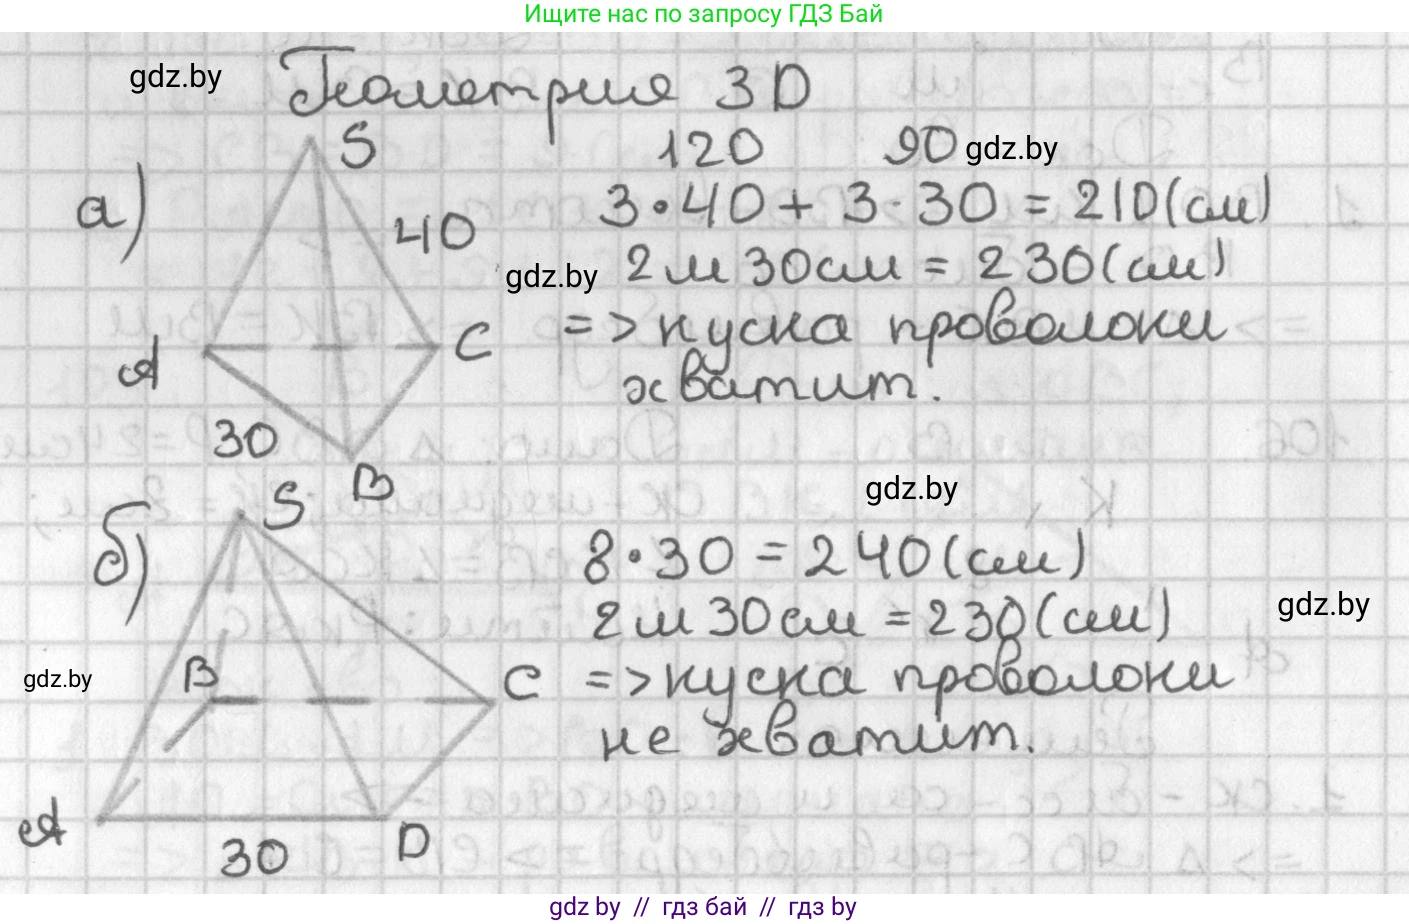 Ищите нас по запросу ГДЗ Бай
gdz.by
Геометрия 3D
S
120 90 gdz.by
а)
3·40 + 3·30 = 210(см)
40
gdz.by
2 м 30 см = 230(см)
A
C
=> куска проволоки
хватит.
30
B
gdz.by
S
б)
8·30 = 240(см)
2 м 30 см = 230(см)
gdz.by
gdz.by
B
C
=> куска проволоки
не хватит.
A
30
D
gdz.by // гдз бай // гдз by